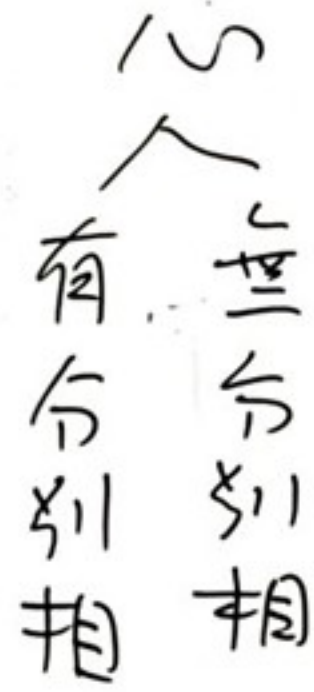 心
無分別相
有分別相